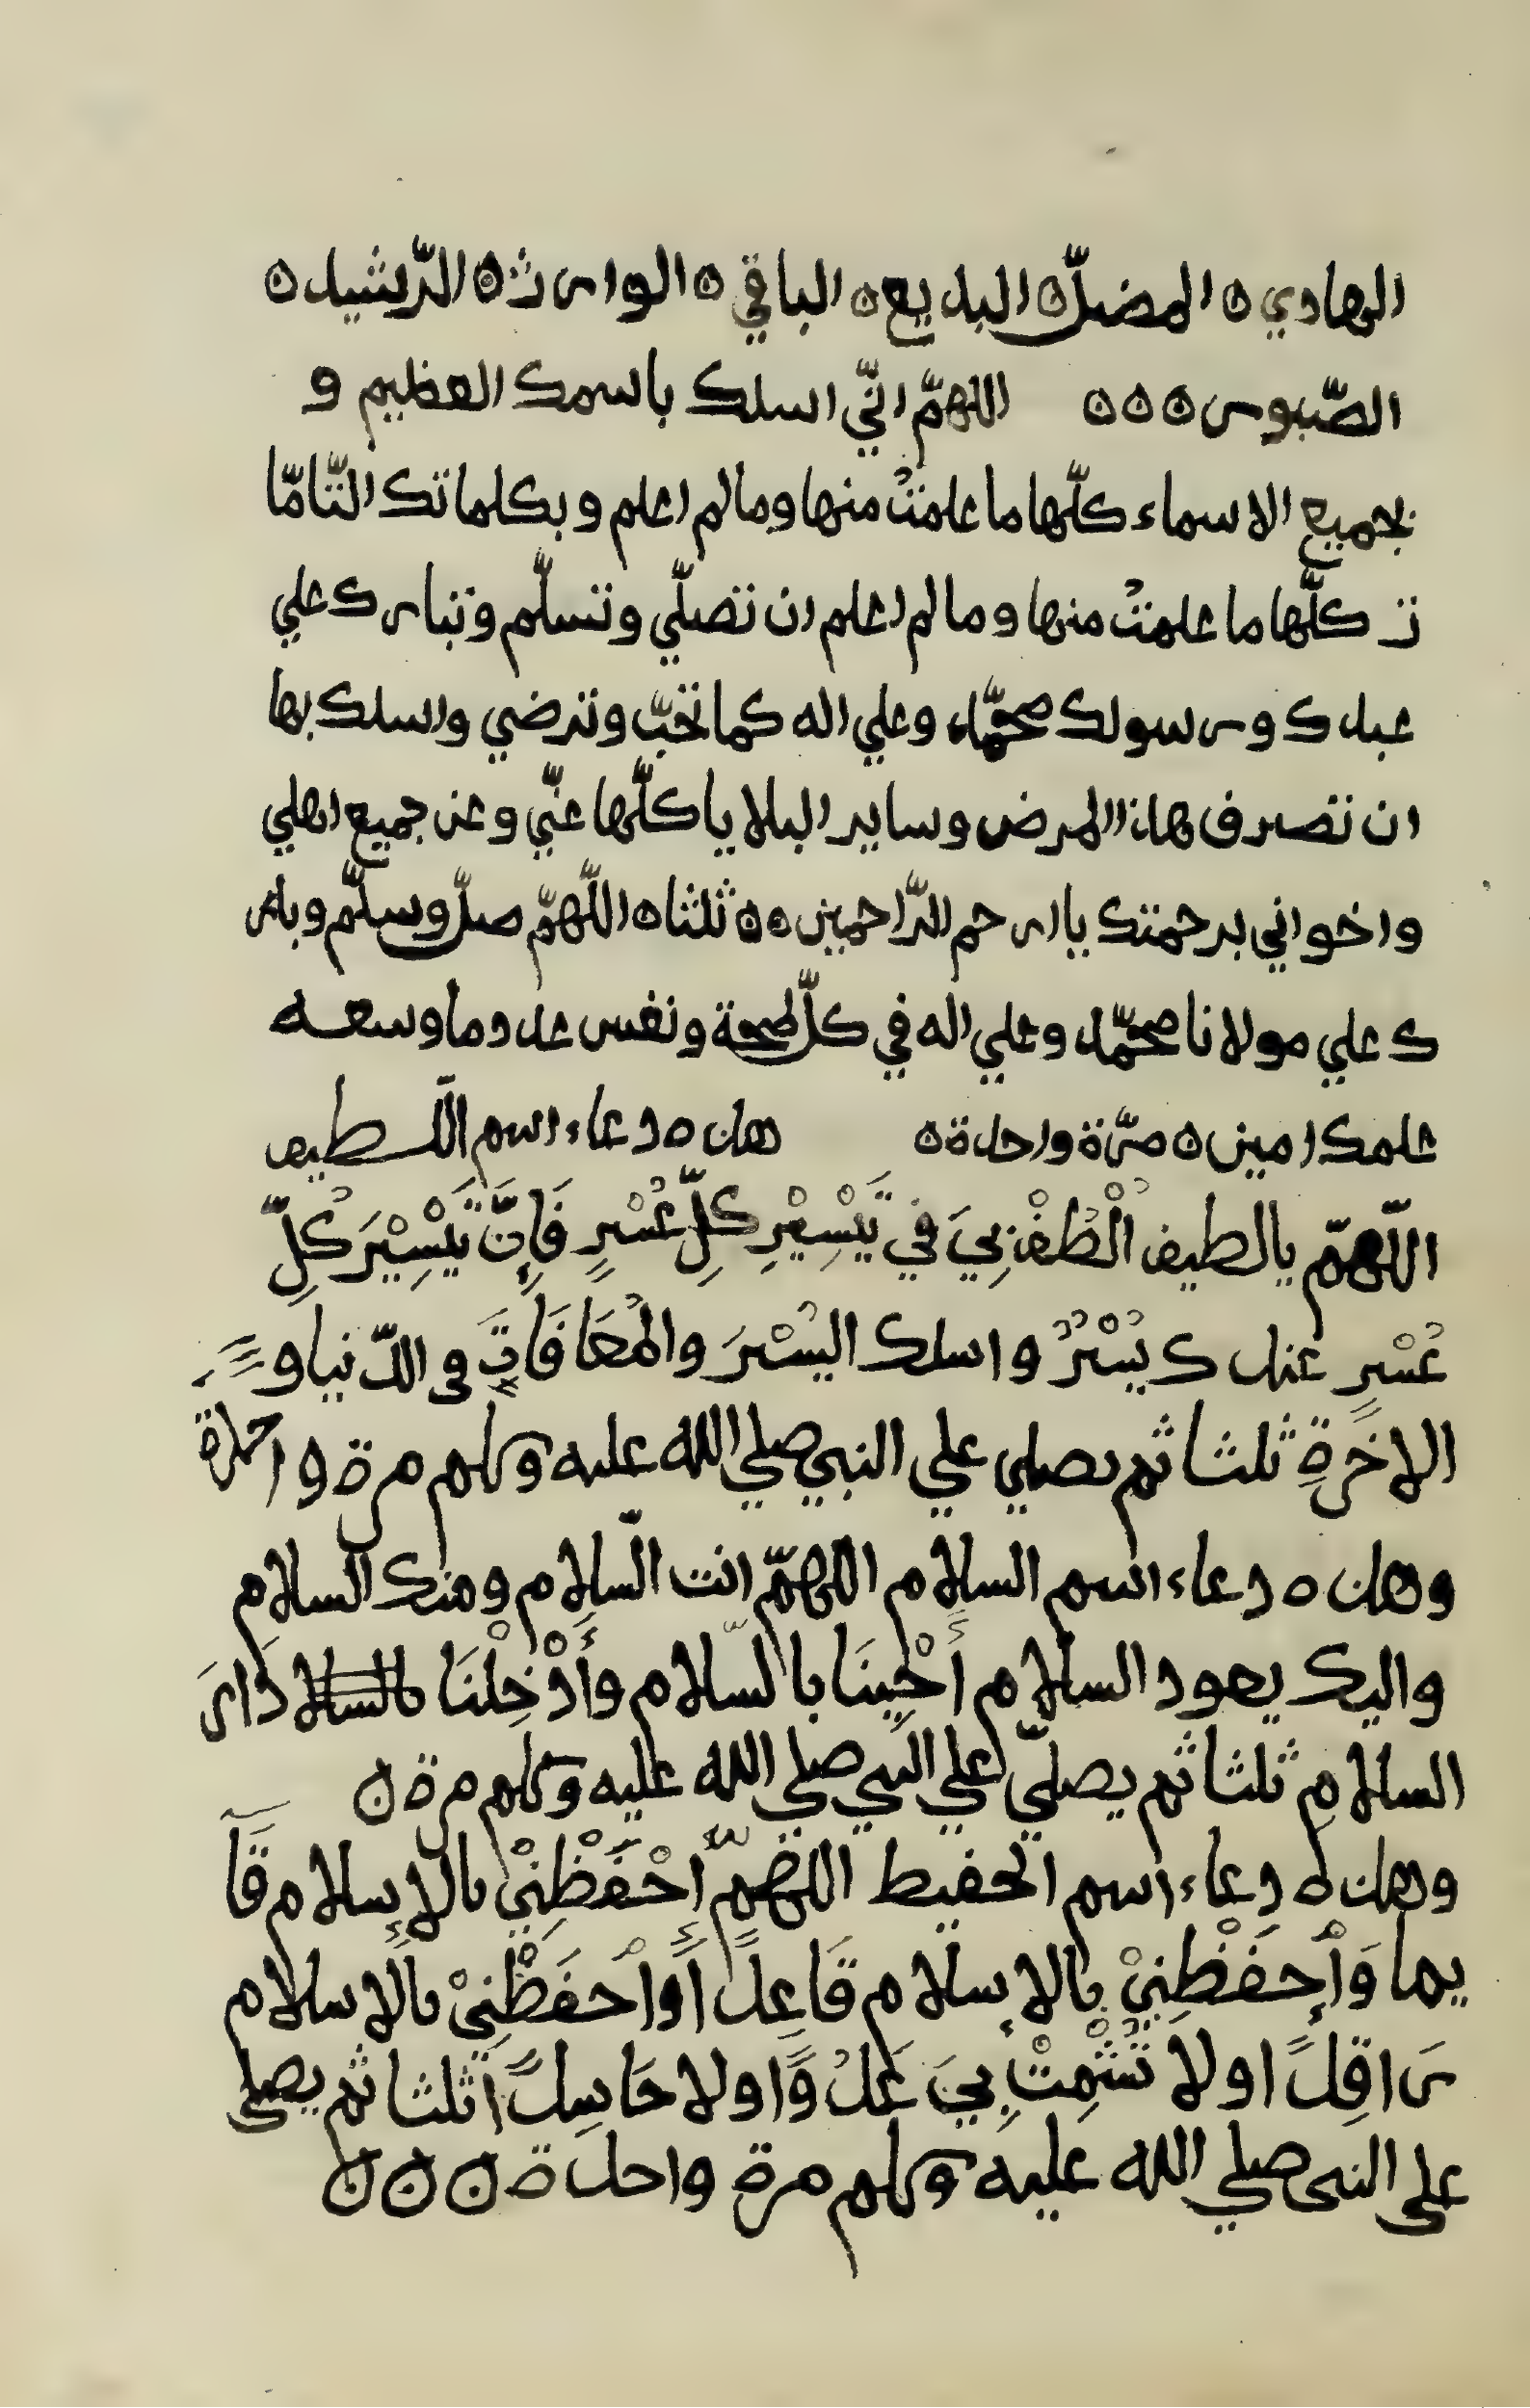 الهادي ه المضلّ ه البديع ه الباقي ه الوارث ه الرّشيد ه
الصّبور ه ه ه اللهمّ انّي اسلك باسمك العظيم و
بجميع الاسماء كلّها ما علمتُ منها وما لم اعلم وبكلماتك التّامّا
ت كلّها ما علمتُ منها وما لم اعلم ان تصلّي وتسلّم وتبارك علي
عبدك ورسولك محمّد وعلي اله كما تحبّ وترضي واسلك بها
ان تصرف هاذا المرض وساير البلايا كلّها عنّي وعن جميع اهلي
واخواني برحمتك يا ارحم الرّاحمين ه ه ثلثا ه اللّهمّ صلّ وسلّم وبار
ك علي مولانا محمّد وعلي اله في كلّ لمحة ونفس عدد ما وسعه
علمك امين ه مرّة واحدة ه هذه دعاء اسم اللّطيف
اللّهمّ يالطيف اُلْطُفْ بِيَ في تَيْسِيْرِ كلِّ عُسْرٍ فَإِنَّ تَيْسِيْرَ كُلِّ
عُسْرٍ عندك يُسْرٌ واسلك اليُسْرَ والمُعَافَاتِ في الدّنيا و
الاخَرةِ ثلثا ثم يصلي علي النبي صلي الله عليه وسلم مرة واحدة
وهذه دعاء اسم السلام اللهمّ انت السّلام ومنك السلام
واليك يعود السلام أَحْيِنَا بالسّلام وأَدْخِلْنَا دَارَ
السلامِ ثلثا ثم يصلّي علي النبي صلي الله عليه وسلم مرة ه
وهذه دعاء اسم الحفيظ اللهمّ إِحْفَظْنِيْ بالإسلام قَآ
يما وَاْحفَظْنِيْ بالإسلام قَاعِدًا وَاْحفَظْنِيْ بالإسلام
رَاقِدًا ولا تُشْمِتْ بِيَ عَدُوًّا ولا حَاسِدًا ثلثا ثم يصلي
علي النبي صلي الله عليه وسلم مرة واحدة ه ه ه